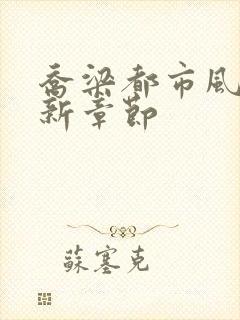 喬梁都市風
新章節
蘇塞克